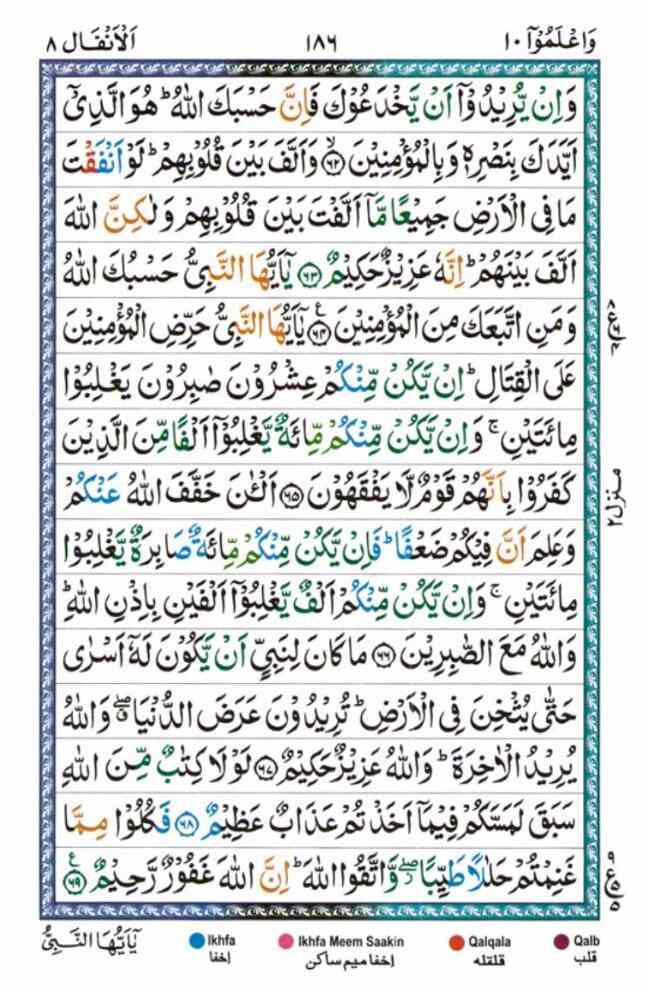 وَاعْلَمُوْۤا ١٠ ١٨٦ اَلْاَنْفَال ٨
وَاِنْ يُّرِيْدُوْۤا اَنْ يَّخْدَعُوْكَ فَاِنَّ حَسْبَكَ اللّٰهُ ؕ هُوَ الَّذِيْۤ
اَيَّدَكَ بِنَصْرِهٖ وَبِالْمُؤْمِنِيْنَ ۙ﴿٦٢﴾ وَاَلَّفَ بَيْنَ قُلُوْبِهِمْ ؕ لَوْ اَنْفَقْتَ
مَا فِى الْاَرْضِ جَمِيْعًا مَّاۤ اَلَّفْتَ بَيْنَ قُلُوْبِهِمْ وَلٰكِنَّ اللّٰهَ
اَلَّفَ بَيْنَهُمْ ؕ اِنَّهٗ عَزِيْزٌ حَكِيْمٌ ﴿٦٣﴾ يٰۤاَيُّهَا النَّبِىُّ حَسْبُكَ اللّٰهُ
وَمَنِ اتَّبَعَكَ مِنَ الْمُؤْمِنِيْنَ ﴿٦٤﴾ ع يٰۤاَيُّهَا النَّبِىُّ حَرِّضِ الْمُؤْمِنِيْنَ
عَلَى الْقِتَالِ ؕ اِنْ يَّكُنْ مِّنْكُمْ عِشْرُوْنَ صٰبِرُوْنَ يَغْلِبُوْا
مِائَتَيْنِ ۚ وَاِنْ يَّكُنْ مِّنْكُمْ مِّائَةٌ يَّغْلِبُوْۤا اَلْفًا مِّنَ الَّذِيْنَ
كَفَرُوْا بِاَنَّهُمْ قَوْمٌ لَّا يَفْقَهُوْنَ ﴿٦٥﴾ اَلْـٰٔنَ خَفَّفَ اللّٰهُ عَنْكُمْ
وَعَلِمَ اَنَّ فِيْكُمْ ضَعْفًا ؕ فَاِنْ يَّكُنْ مِّنْكُمْ مِّائَةٌ صَابِرَةٌ يَّغْلِبُوْا
مِائَتَيْنِ ۚ وَاِنْ يَّكُنْ مِّنْكُمْ اَلْفٌ يَّغْلِبُوْۤا اَلْفَيْنِ بِاِذْنِ اللّٰهِ ؕ
وَاللّٰهُ مَعَ الصّٰبِرِيْنَ ﴿٦٦﴾ مَا كَانَ لِنَبِىٍّ اَنْ يَّكُوْنَ لَهٗۤ اَسْرٰى
حَتّٰى يُثْخِنَ فِى الْاَرْضِ ؕ تُرِيْدُوْنَ عَرَضَ الدُّنْيَا ۖ وَاللّٰهُ
يُرِيْدُ الْاٰخِرَةَ ؕ وَاللّٰهُ عَزِيْزٌ حَكِيْمٌ ﴿٦٧﴾ لَوْلَا كِتٰبٌ مِّنَ اللّٰهِ
سَبَقَ لَمَسَّكُمْ فِيْمَاۤ اَخَذْتُمْ عَذَابٌ عَظِيْمٌ ﴿٦٨﴾ فَكُلُوْا مِمَّا
غَنِمْتُمْ حَلٰلًا طَيِّبًا ۖ وَّاتَّقُوا اللّٰهَ ؕ اِنَّ اللّٰهَ غَفُوْرٌ رَّحِيْمٌ ﴿٦٩﴾ ع
منزل ٢
يٰۤاَيُّهَا النَّبِىُّ
Ikhfa Ikhfa Meem Saakin Qalqala Qalb
اِخفا اخفا میم ساکن قلقله قلب